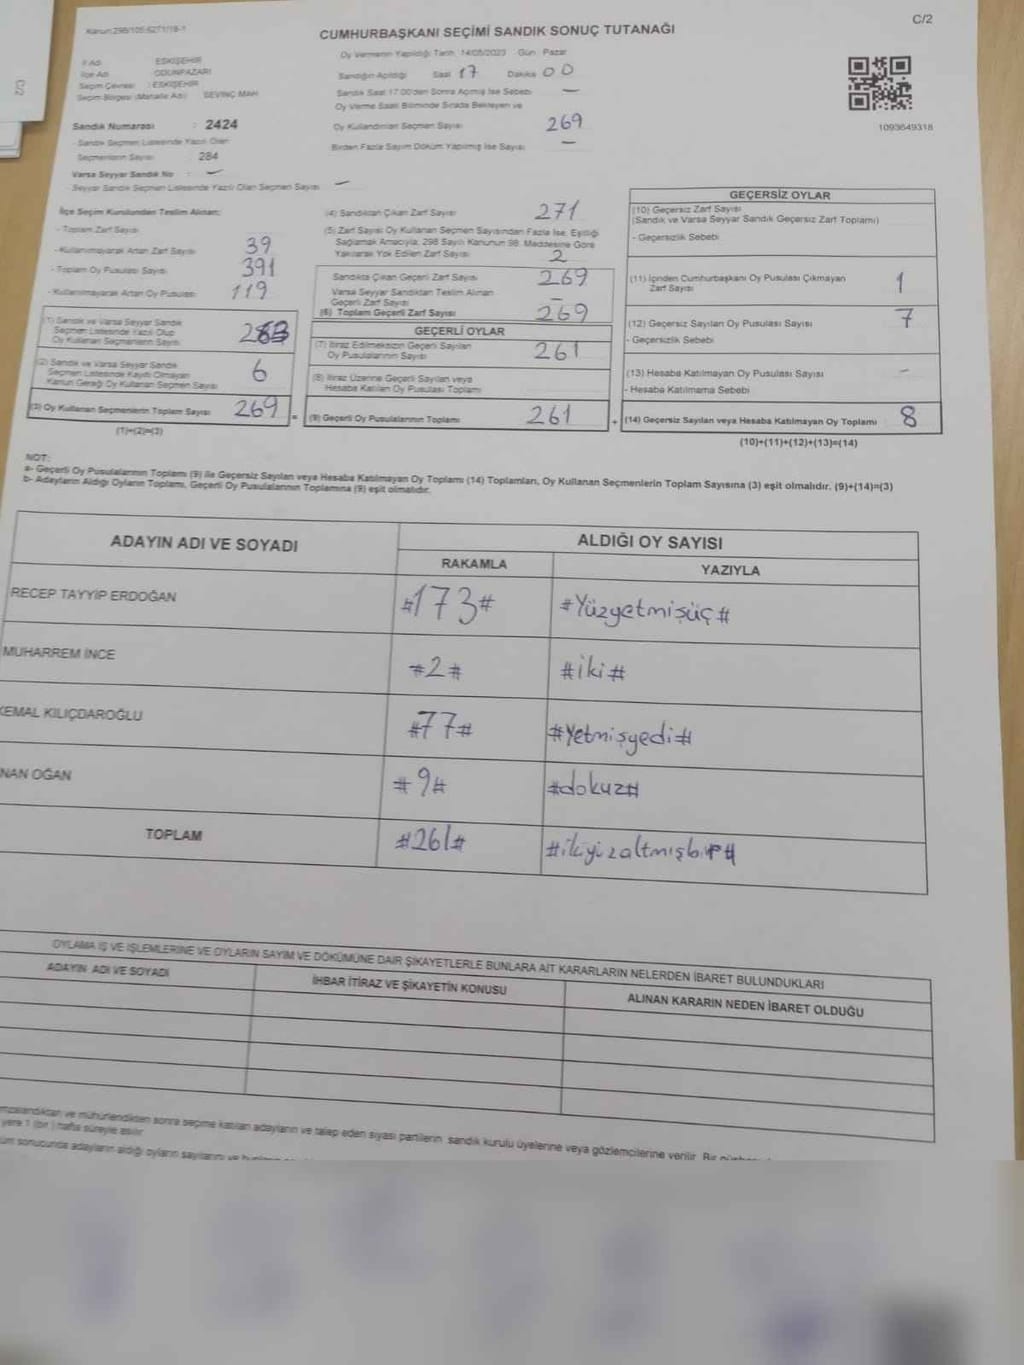 Kanun:298/105.6271/18-1
C/2
CUMHURBAŞKANI SEÇİMİ SANDIK SONUÇ TUTANAĞI
Oy Vermenin Yapıldığı Tarih: 14/05/2023 Gün: Pazar
İl Adı : ESKİŞEHİR
İlçe Adı : ODUNPAZARI
Seçim Çevresi : ESKİŞEHİR
Seçim Bölgesi (Mahalle Adı) : SEVİNÇ MAH.
Sandığın Açıldığı Saat 17 Dakika 00
Sandık Saat 17:00'den Sonra Açılmış İse Sebebi –
Oy Verme Saati Bitiminde Sırada Bekleyen ve
Oy Kullandırılan Seçmen Sayısı 269
Birden Fazla Sayım Döküm Yapılmış İse Sayısı –
1093649318
Sandık Numarası : 2424
- Sandık Seçmen Listesinde Yazılı Olan
Seçmenlerin Sayısı : 284
Varsa Seyyar Sandık No : –
- Seyyar Sandık Seçmen Listesinde Yazılı Olan Seçmen Sayısı –
İlçe Seçim Kurulundan Teslim Alınan;
- Toplam Zarf Sayısı
- Kullanılmayarak Artan Zarf Sayısı 39
- Toplam Oy Pusulası Sayısı 391
- Kullanılmayarak Artan Oy Pusulası 119
(1) Sandık ve Varsa Seyyar Sandık
Seçmen Listesinde Yazılı Olup
Oy Kullanan Seçmenlerin Sayısı
(2) Sandık ve Varsa Seyyar Sandık
Seçmen Listesinde Kayıtlı Olmayan
Kanun Gereği Oy Kullanan Seçmen Sayısı 6
(3) Oy Kullanan Seçmenlerin Toplam Sayısı 269 =
(1)+(2)=(3)
(4) Sandıktan Çıkan Zarf Sayısı 271
(5) Zarf Sayısı Oy Kullanan Seçmen Sayısından Fazla İse, Eşitliği
Sağlamak Amacıyla, 298 Sayılı Kanunun 98. Maddesine Göre
Yakılarak Yok Edilen Zarf Sayısı 2
Sandıkta Çıkan Geçerli Zarf Sayısı 269
Varsa Seyyar Sandıktan Teslim Alınan
Geçerli Zarf Sayısı –
(6) Toplam Geçerli Zarf Sayısı 269
GEÇERLİ OYLAR
(7) İtiraz Edilmeksizin Geçerli Sayılan
Oy Pusulalarının Sayısı 261
(8) İtiraz Üzerine Geçerli Sayılan veya
Hesaba Katılan Oy Pusulası Toplamı
(9) Geçerli Oy Pusulalarının Toplamı 261 +
GEÇERSİZ OYLAR
(10) Geçersiz Zarf Sayısı
(Sandık ve Varsa Seyyar Sandık Geçersiz Zarf Toplamı)
- Geçersizlik Sebebi
(11) İçinden Cumhurbaşkanı Oy Pusulası Çıkmayan
Zarf Sayısı 1
(12) Geçersiz Sayılan Oy Pusulası Sayısı 7
- Geçersizlik Sebebi
(13) Hesaba Katılmayan Oy Pusulası Sayısı –
- Hesaba Katılmama Sebebi
(14) Geçersiz Sayılan veya Hesaba Katılmayan Oy Toplamı 8
(10)+(11)+(12)+(13)=(14)
NOT:
a- Geçerli Oy Pusulalarının Toplamı (9) ile Geçersiz Sayılan veya Hesaba Katılmayan Oy Toplamı (14) Toplamları, Oy Kullanan Seçmenlerin Toplam Sayısına (3) eşit olmalıdır. (9)+(14)=(3)
b- Adayların Aldığı Oyların Toplamı, Geçerli Oy Pusulalarının Toplamına (9) eşit olmalıdır.
ADAYIN ADI VE SOYADI
ALDIĞI OY SAYISI
RAKAMLA YAZIYLA
RECEP TAYYİP ERDOĞAN #173# #Yüzyetmişüç#
MUHARREM İNCE #2# #iki#
KEMAL KILIÇDAROĞLU #77# #Yetmişyedi#
NAN OĞAN #9# #dokuz#
TOPLAM #261# #ikiyüzaltmışbir#
OYLAMA İŞ VE İŞLEMLERİNE VE OYLARIN SAYIM VE DÖKÜMÜNE DAİR ŞİKAYETLERLE BUNLARA AİT KARARLARIN NELERDEN İBARET BULUNDUKLARI
ADAYIN ADI VE SOYADI İHBAR İTİRAZ VE ŞİKAYETİN KONUSU ALINAN KARARIN NEDEN İBARET OLDUĞU
mzalandıktan ve mühürlendikten sonra seçime katılan adayların ve talep eden siyasi partilerin sandık kurulu üyelerine veya gözlemcilerine verilir. Bir
yere 1 (bir) hafta süreyle asılır.
sonucunda adayların aldığı oyların sayılarını ve